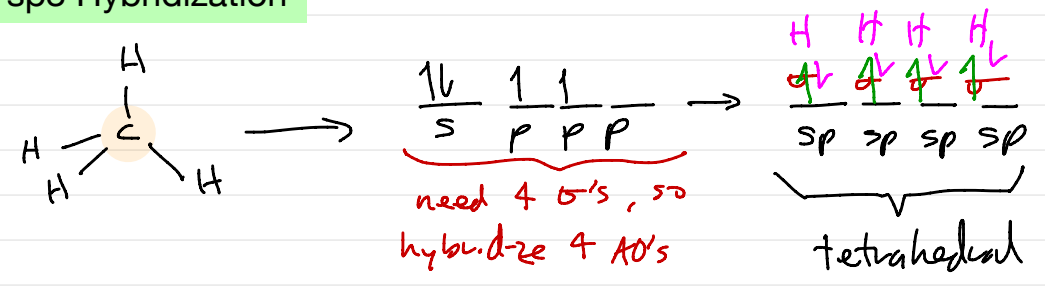 sp3 Hybridization
H
C
H
H
H
1L 1 1
s p p p
need 4 σ's, so
hybridize 4 AO's
H H H H
σ σ σ σ
sp sp sp sp
tetrahedral